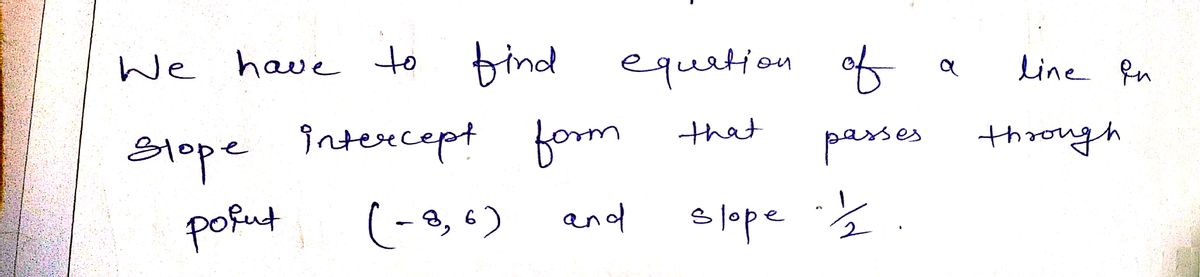 We have to find equation of a line in
slope intercept form that passes through
point (-8, 6) and slope 1/2.